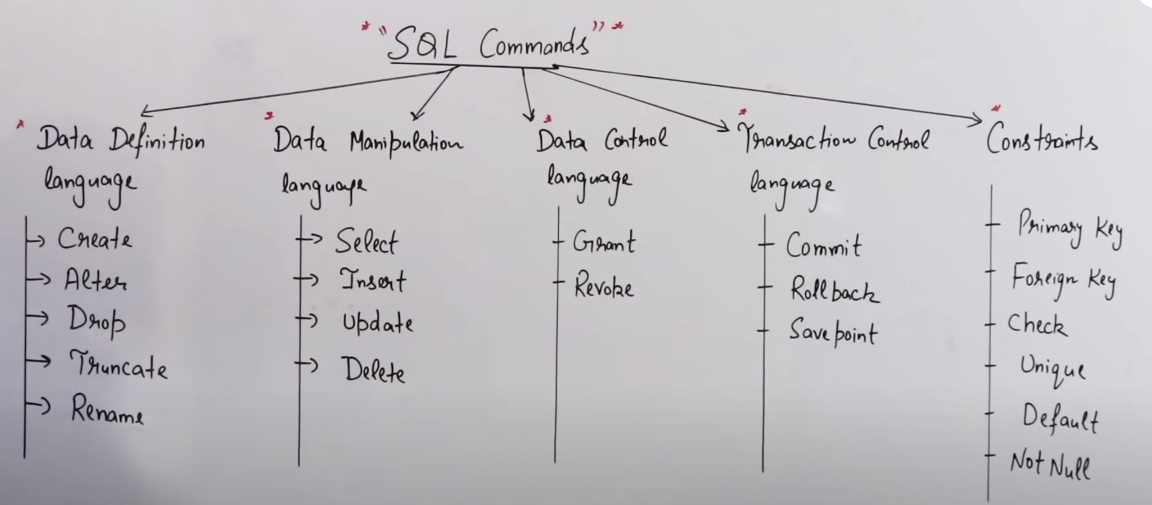 "SQL Commands"
Data Definition
language
Create
Alter
Drop
Truncate
Rename
Data Manipulation
language
Select
Insert
Update
Delete
Data Control
language
Grant
Revoke
Transaction Control
language
Commit
Rollback
Savepoint
Constraints
Primary Key
Foreign Key
Check
Unique
Default
Not Null